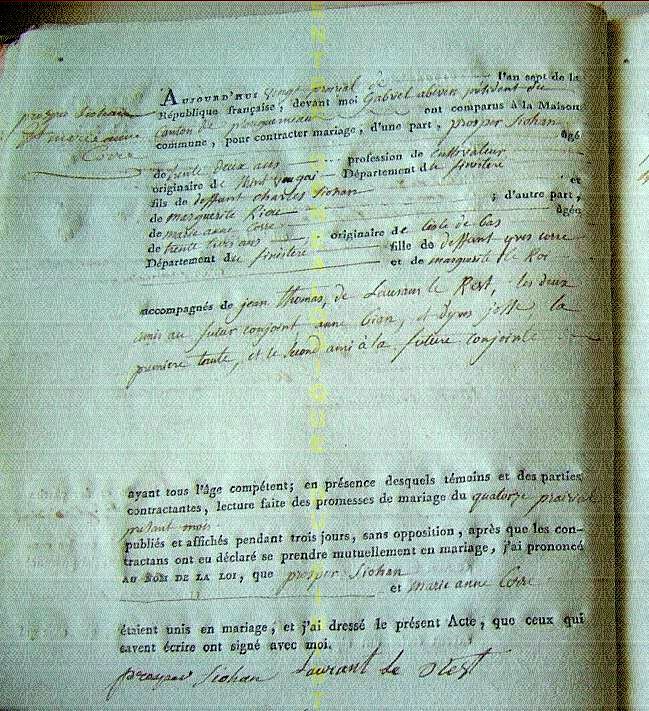 prosper Siohan
et marie anne
Corre
AUJOURD'HUI vingt prairial l'an sept de la
République française, devant moi Gabriel abiven président du
Canton de ont comparus à la Maison
commune, pour contracter mariage, d'une part, prosper Siohan
âgé
de trente deux ans profession de Cultivateur
originaire de Département du finistère
fils de deffunt charles Siohan et
de marguerite Riou ; d'autre part,
de marie anne Corre âgée
de trente trois ans originaire de de Bas
Département du finistère fille de deffunt yves corre
et de marguerite le Roi
accompagnés de jean thomas, de Laurans le Rest, les deux
amis au futur conjoint anne et d'yves josse la
premiere tante, et le second ami à la future conjointe
ayant tous l'âge compétent; en présence desquels témoins et des parties
contractantes, lecture faite des promesses de mariage du quatorze prairial
présent mois
publiés et affichés pendant trois jours, sans opposition, après que les con-
tractans ont eu déclaré se prendre mutuellement en mariage, j'ai prononcé
AU NOM DE LA LOI, que prosper Siohan
et marie anne Corre
étaient unis en mariage; et j'ai dressé le présent Acte, que ceux qui
savent écrire ont signé avec moi.
prosper Siohan Laurant le Rest